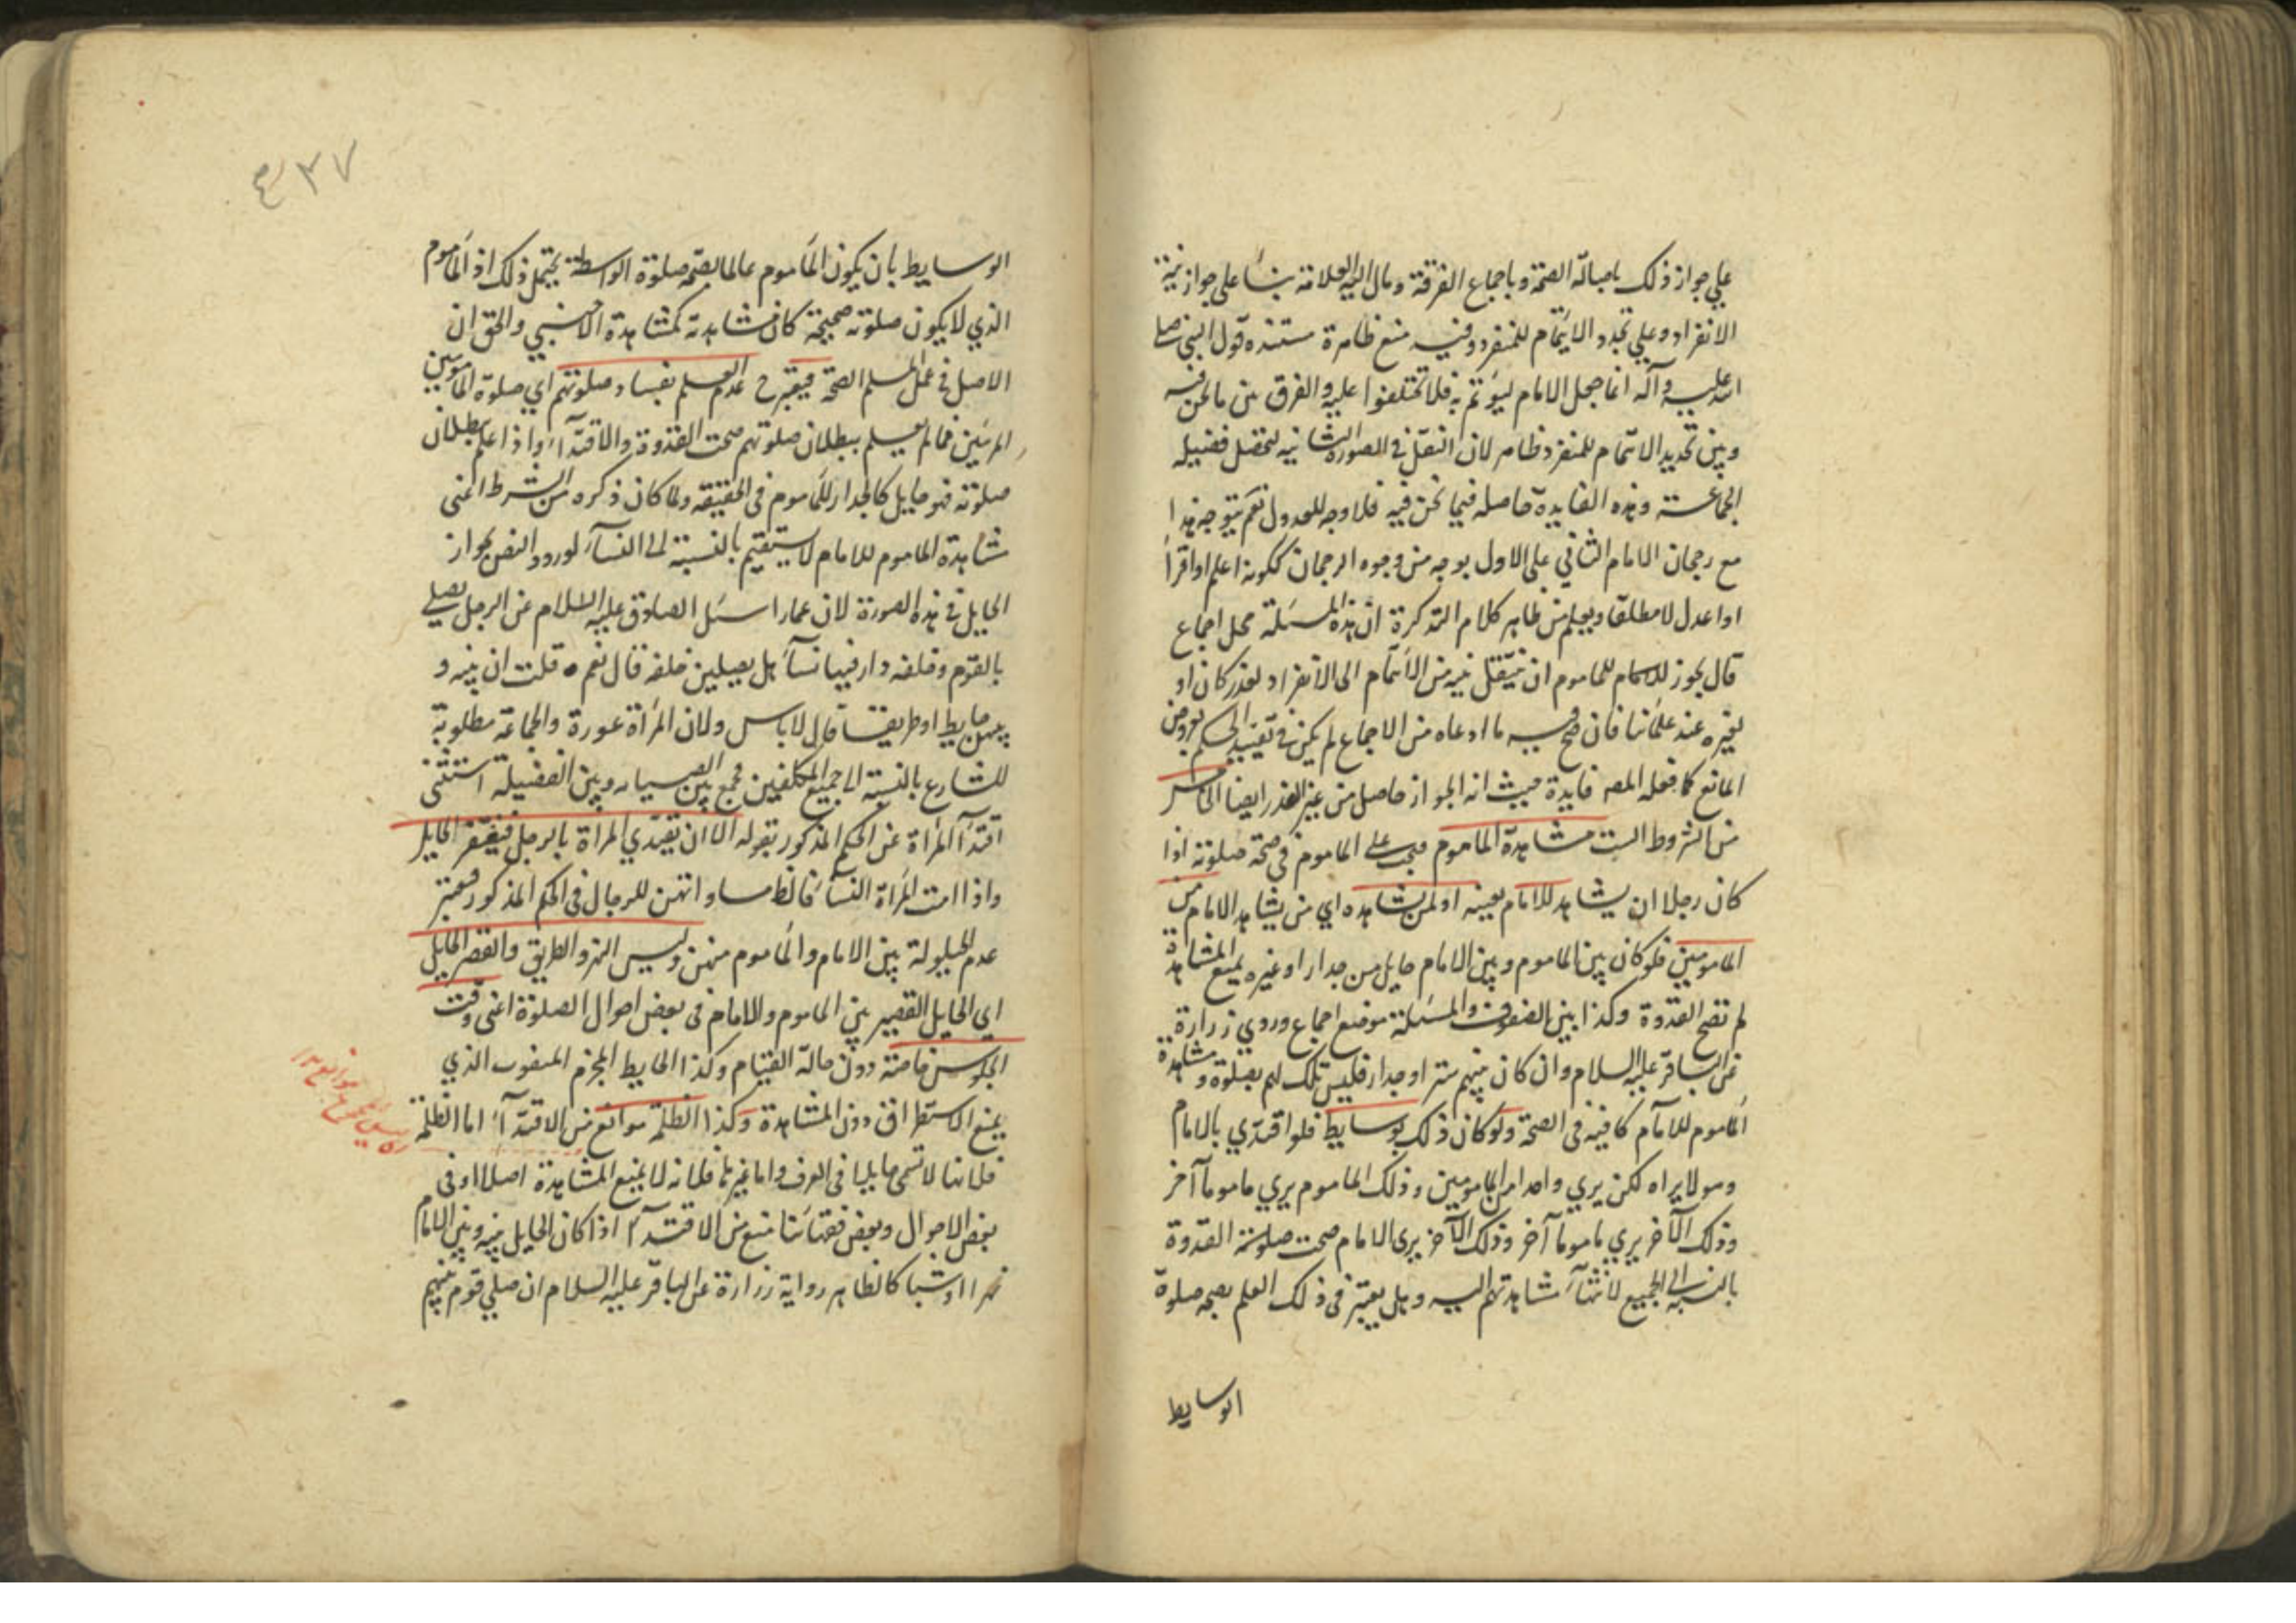 علي جواز ذلك باصالة الصحة وباجماع الفرقة ومال اليه العلامة بناء على جواز نية
الانفراد وعلي تجدد الايتمام للمنفرد وفيه منع ظاهرة مستنده قول النبي صلي
الله عليه وآله انما جعل الامام ليؤتم به فلا تختلفوا عليه والفرق بين ما نحن فيه
وبين تجديد الائتمام للمنفرد ظاهر لان النقل في الصورة الثانيه لتحصل فضيله
الجماعة وهذه الفايدة حاصله فيما نحن فيه فلا وجه للعدول نعم يتوجه هذا
مع رجحان الامام الثاني على الاول بوجه من وجوه الرجحان ككونه اعلم او اقرأ
او اعدل لا مطلقا ويعلم من ظاهر كلام التذكرة ان هذه المسئلة محل اجماع
قال يجوز للمأموم ان ينقل نيه من الائتمام الى الانفراد لعذر كان او
لغيره عند علمائنا فان صح ما ادعاه من الاجماع لم يكن في تقييد الحكم بعروض
المانع كما فعله المصه فايدة حيث انه الجواز حاصل من غير العذر ايضا الخامس
من الشروط الست مشاهدة الماموم فيجب على الماموم في صحة صلوته اذا
كان رجلا ان يشاهد للامام بعينه او لمن يشاهده اي من يشاهد الامام من
المامومين فلو كان بين الماموم وبين الامام حايل من جدار او غيره يمنع المشاهدة
لم تصح القدوة وكذا بين الصفوف والمسئلة موضع اجماع وروي زرارة
عن الباقر عليه السلام وان كان بينهم ستر او جدار فليس تلك لهم بصلوة و مشاهدة
الماموم للامام كافية في الصحة ولو كان ذلك بوسايط فلو اقتدي بالامام
وهو لا يراه لكن يري واحدا من المامومين وذلك الماموم يري ماموما آخر
وذلك الآخر يري ماموما آخر وذلك الآخر يرى الامام صحت صلوته القدوة
بالنسبة الى الجميع لانتهآء مشاهدتهم اليه وهل يعتبر في ذلك العلم بصحة صلوة
الوسايط
٤٣٧
الوسايط بان يكون المأموم عالما بصحة صلوة الواسطة يحتمل ذلك اذ المأموم
الذي لا يكون صلوته صحيحة كان مشاهدته كمشاهدة الاجنبي والحق ان
الاصل في عمل المسلم الصحة فيعتبر ح عدم العلم بفساد صلوتهم اي صلوة المأمومين
المرئين فما لم يعلم ببطلان صلوتهم صحت القدوة والاقتدآء واذا علم بطلان
صلوته فهو حايل كالجدار للمأموم في الحقيقة ولما كان ذكره من الشرط اعني
مشاهدة الماموم للامام لا يستقيم بالنسبة الى النسآء لورود النص بجواز
الحايل في هذه الصورة لان عمارا سئل الصادق عليه السلام عن الرجل يصلي
بالقوم وخلفه دار فيها نسآء هل يصلين خلفه قال نعم ٥ قلت ان بينه و
بينهن حايط او طريقا قال لا باس ولان المرأة عورة والجماعة مطلوبة
للشارع بالنسبة الى جميع المكلفين فجمع بين الصيانه وبين الفضيلة استثنى
اقتدآ المرأة عن الحكم المذكور بقوله الا ان تقتدي المراة بالرجل فيغتفر الحايل
واذا امت المرأة النسآء فالظ مساواتهن للرجال في الحكم المذكور فيعتبر
عدم الحيلولة بين الامام والمأموم منهن وليس النهر والطريق والقصر الحايل
اي الحايل القصير بين الماموم والامام في بعض احوال الصلوة اعني وقت
الجلوس خاصة دون حالة القيام وكذا الحايط المخرم المثقوب الذي
يمنع الاستطراق دون المشاهدة وكذا الظلمة موانع من الاقتدآء اما الظلمة
فلانها لا تسمى حايلا في العرف واما غيرها فلانه لا يمنع المشاهدة اصلا او في
بعض الاحوال وبعض فقهائنا منع من الاقتدآء اذا كان الحايل بينه وبين الامام
نهرا او شباكا لظاهر رواية زرارة عن الباقر عليه السلام ان صلي قوم بينهم